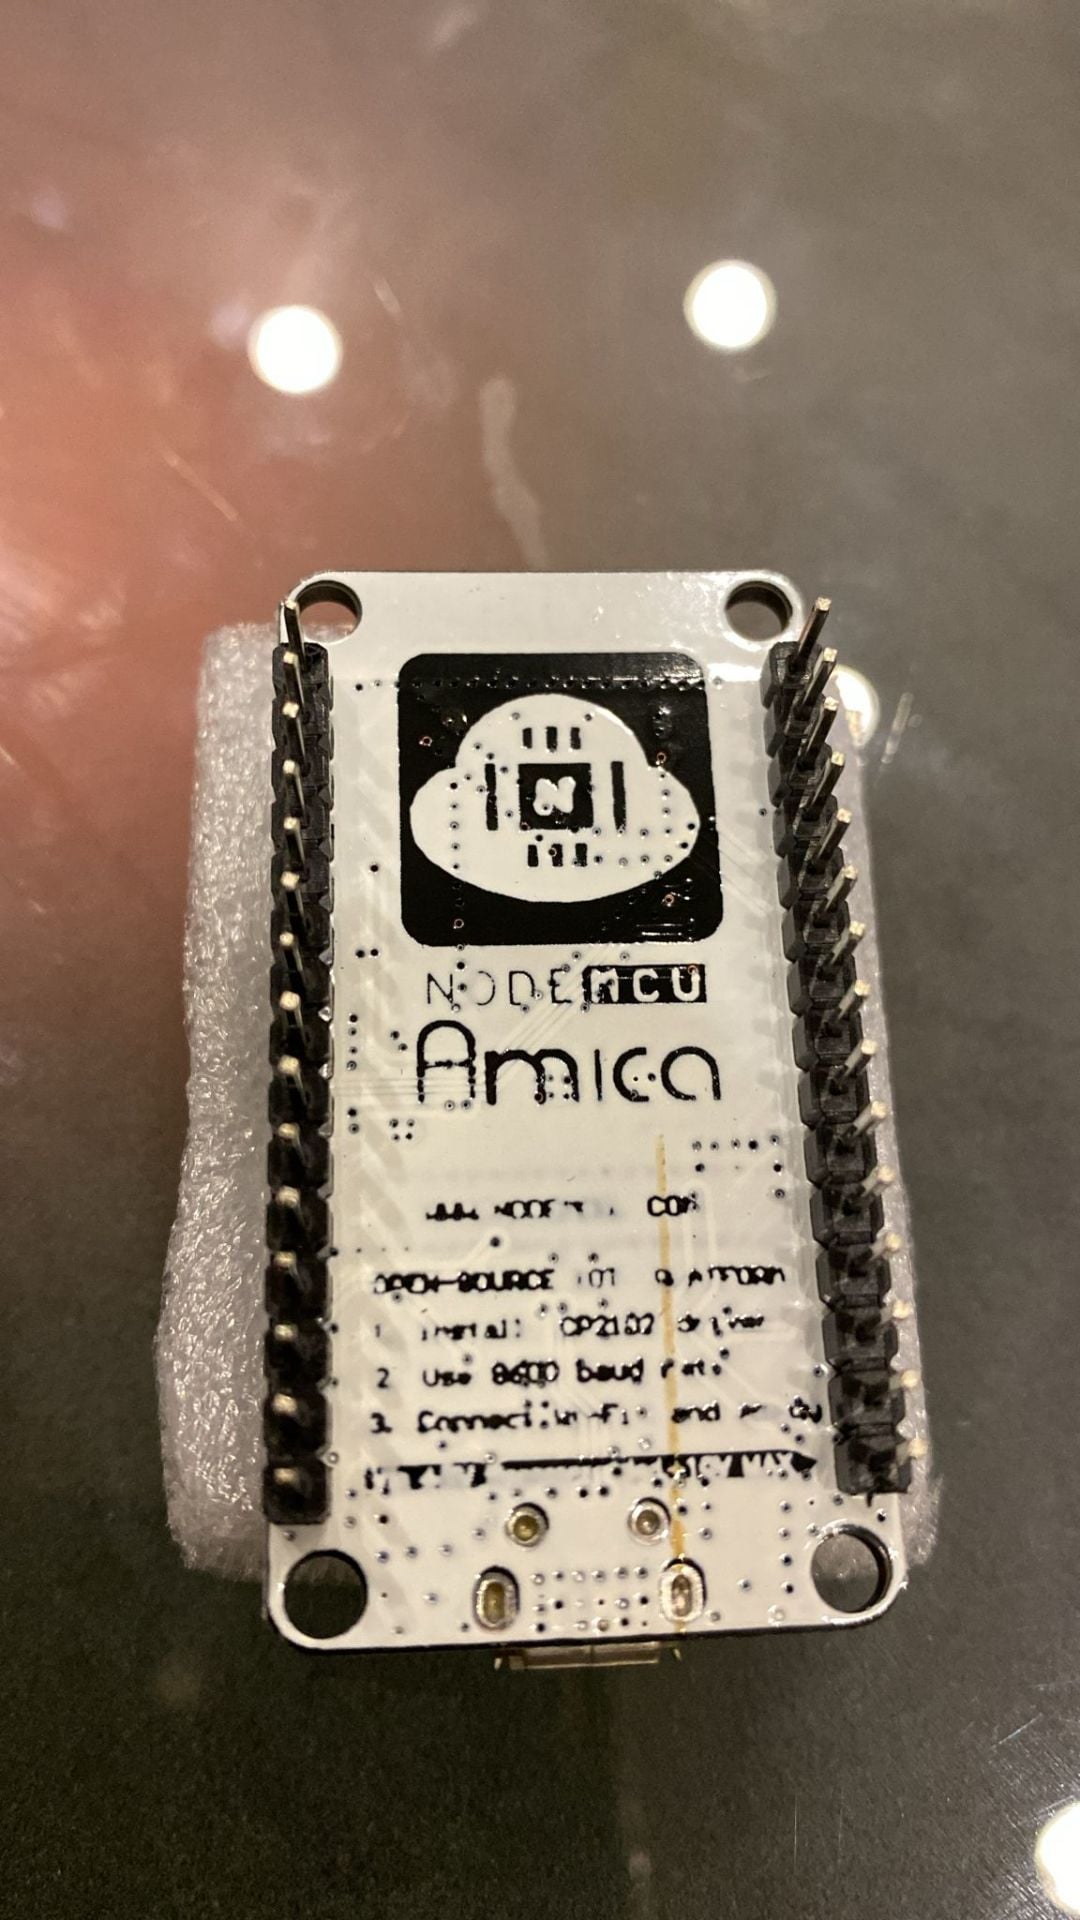 N
NODEMCU
Amica
COM
OPEN-SOURCE IOT PLATFORM
1 Install CP2102 driver
2 Use 9600 baud rate
3. Connect Wi-Fi and